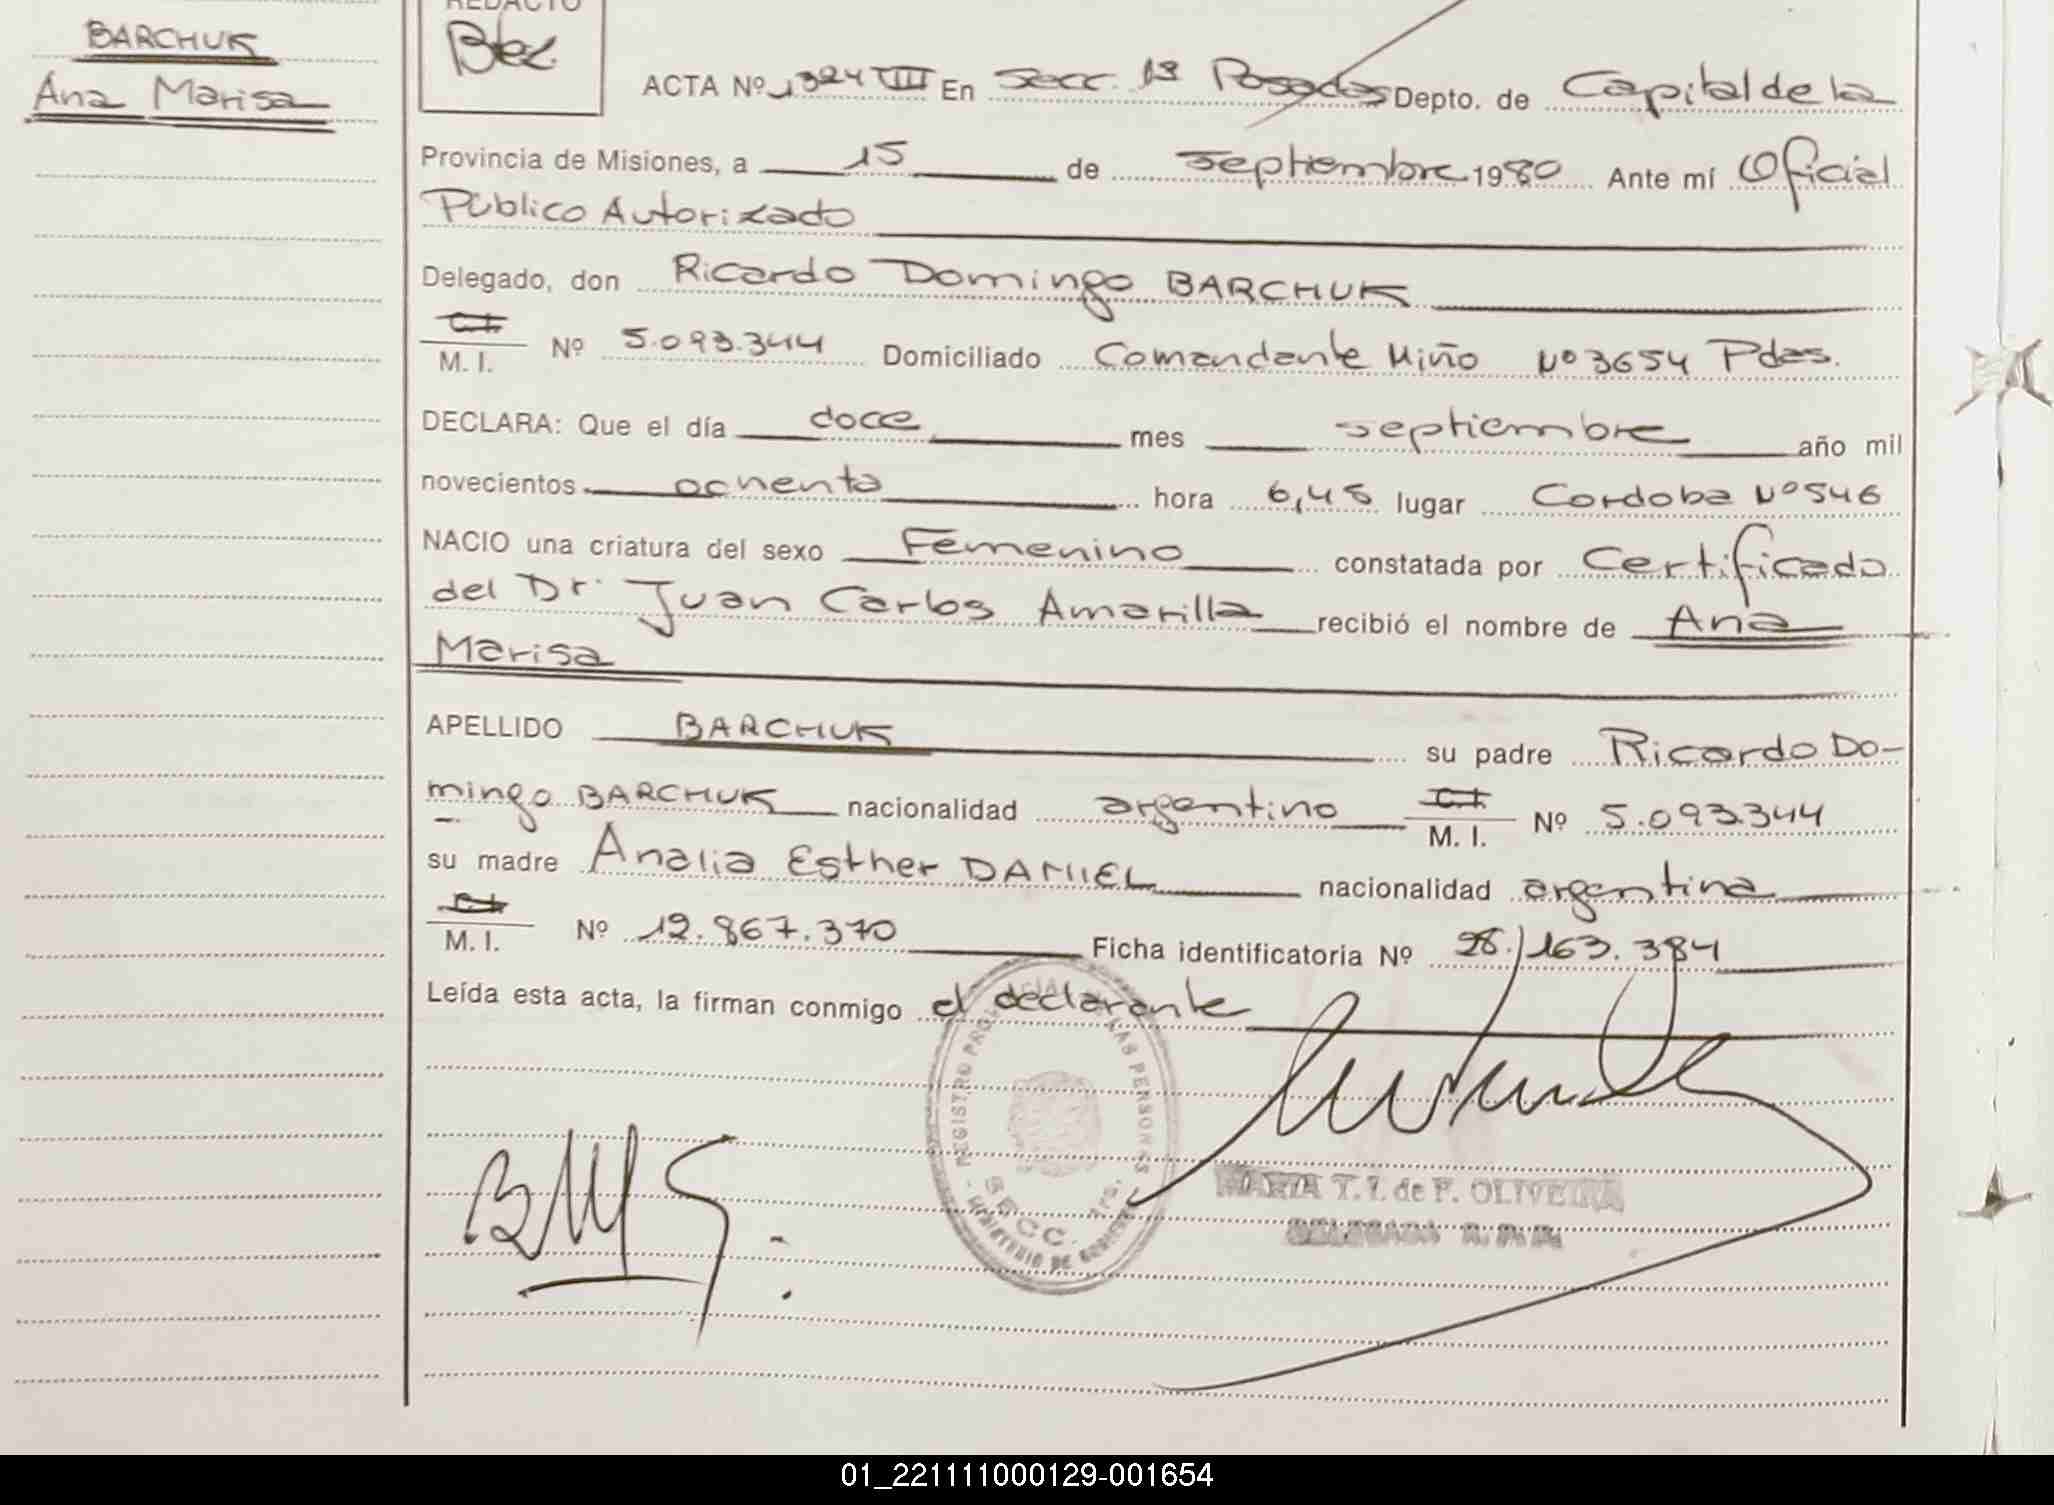 BARCHUK
Ana Marisa
REDACTO
ACTA Nº 1324 VIII En Secc. 1ª Posadas Depto. de Capital de la
Provincia de Misiones, a 15 de septiembre 1980 Ante mí Oficial
Público Autorizado
Delegado, don Ricardo Domingo BARCHUK
C.I.
M. I. Nº 5.093.344 Domiciliado Comandante Miño Nº 3654 Pdas.
DECLARA: Que el día doce mes septiembre año mil
novecientos ochenta hora 6,45 lugar Cordoba Nº 546
NACIO una criatura del sexo Femenino constatada por Certificado
del Dr. Juan Carlos Amarilla recibió el nombre de Ana
Marisa
APELLIDO BARCHUK su padre Ricardo Do-
mingo BARCHUK nacionalidad argentino C.I. M. I. Nº 5.093.344
su madre Analia Esther DANIEL nacionalidad argentina
C.I.
M. I. Nº 12.867.370 Ficha identificatoria Nº 28.163.384
Leída esta acta, la firman conmigo el declarante
REGISTRO DE LAS PERSONAS
SECC. 1ra.
MINISTERIO DE GOBIERNO
MARIA T. de F. OLIVEIRA
DELEGADA R. P. P.
01_221111000129-001654